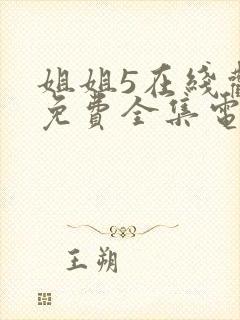 姐姐5在綫觀
免費全集電
王朔